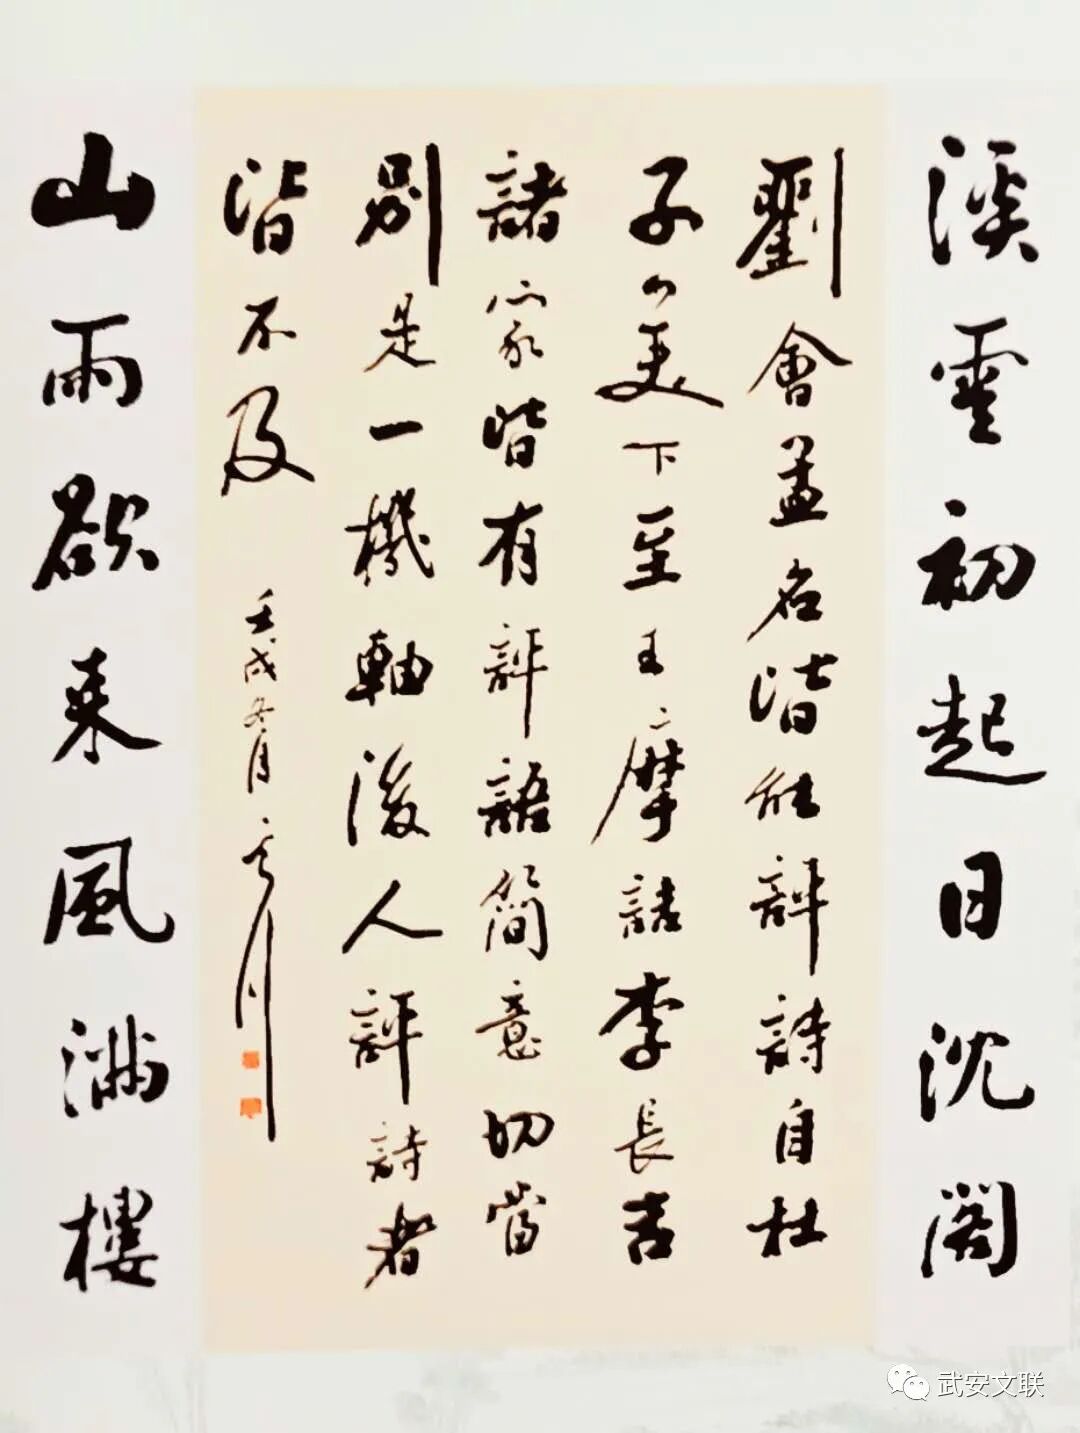 溪雲初起日沈閣
劉會孟名皆能評詩自杜
子美下至王摩詰李長吉
諸家皆有評語簡意切當
別是一機軸後人評詩者
皆不及
壬戌冬月
山雨欲來風滿樓
武安文联